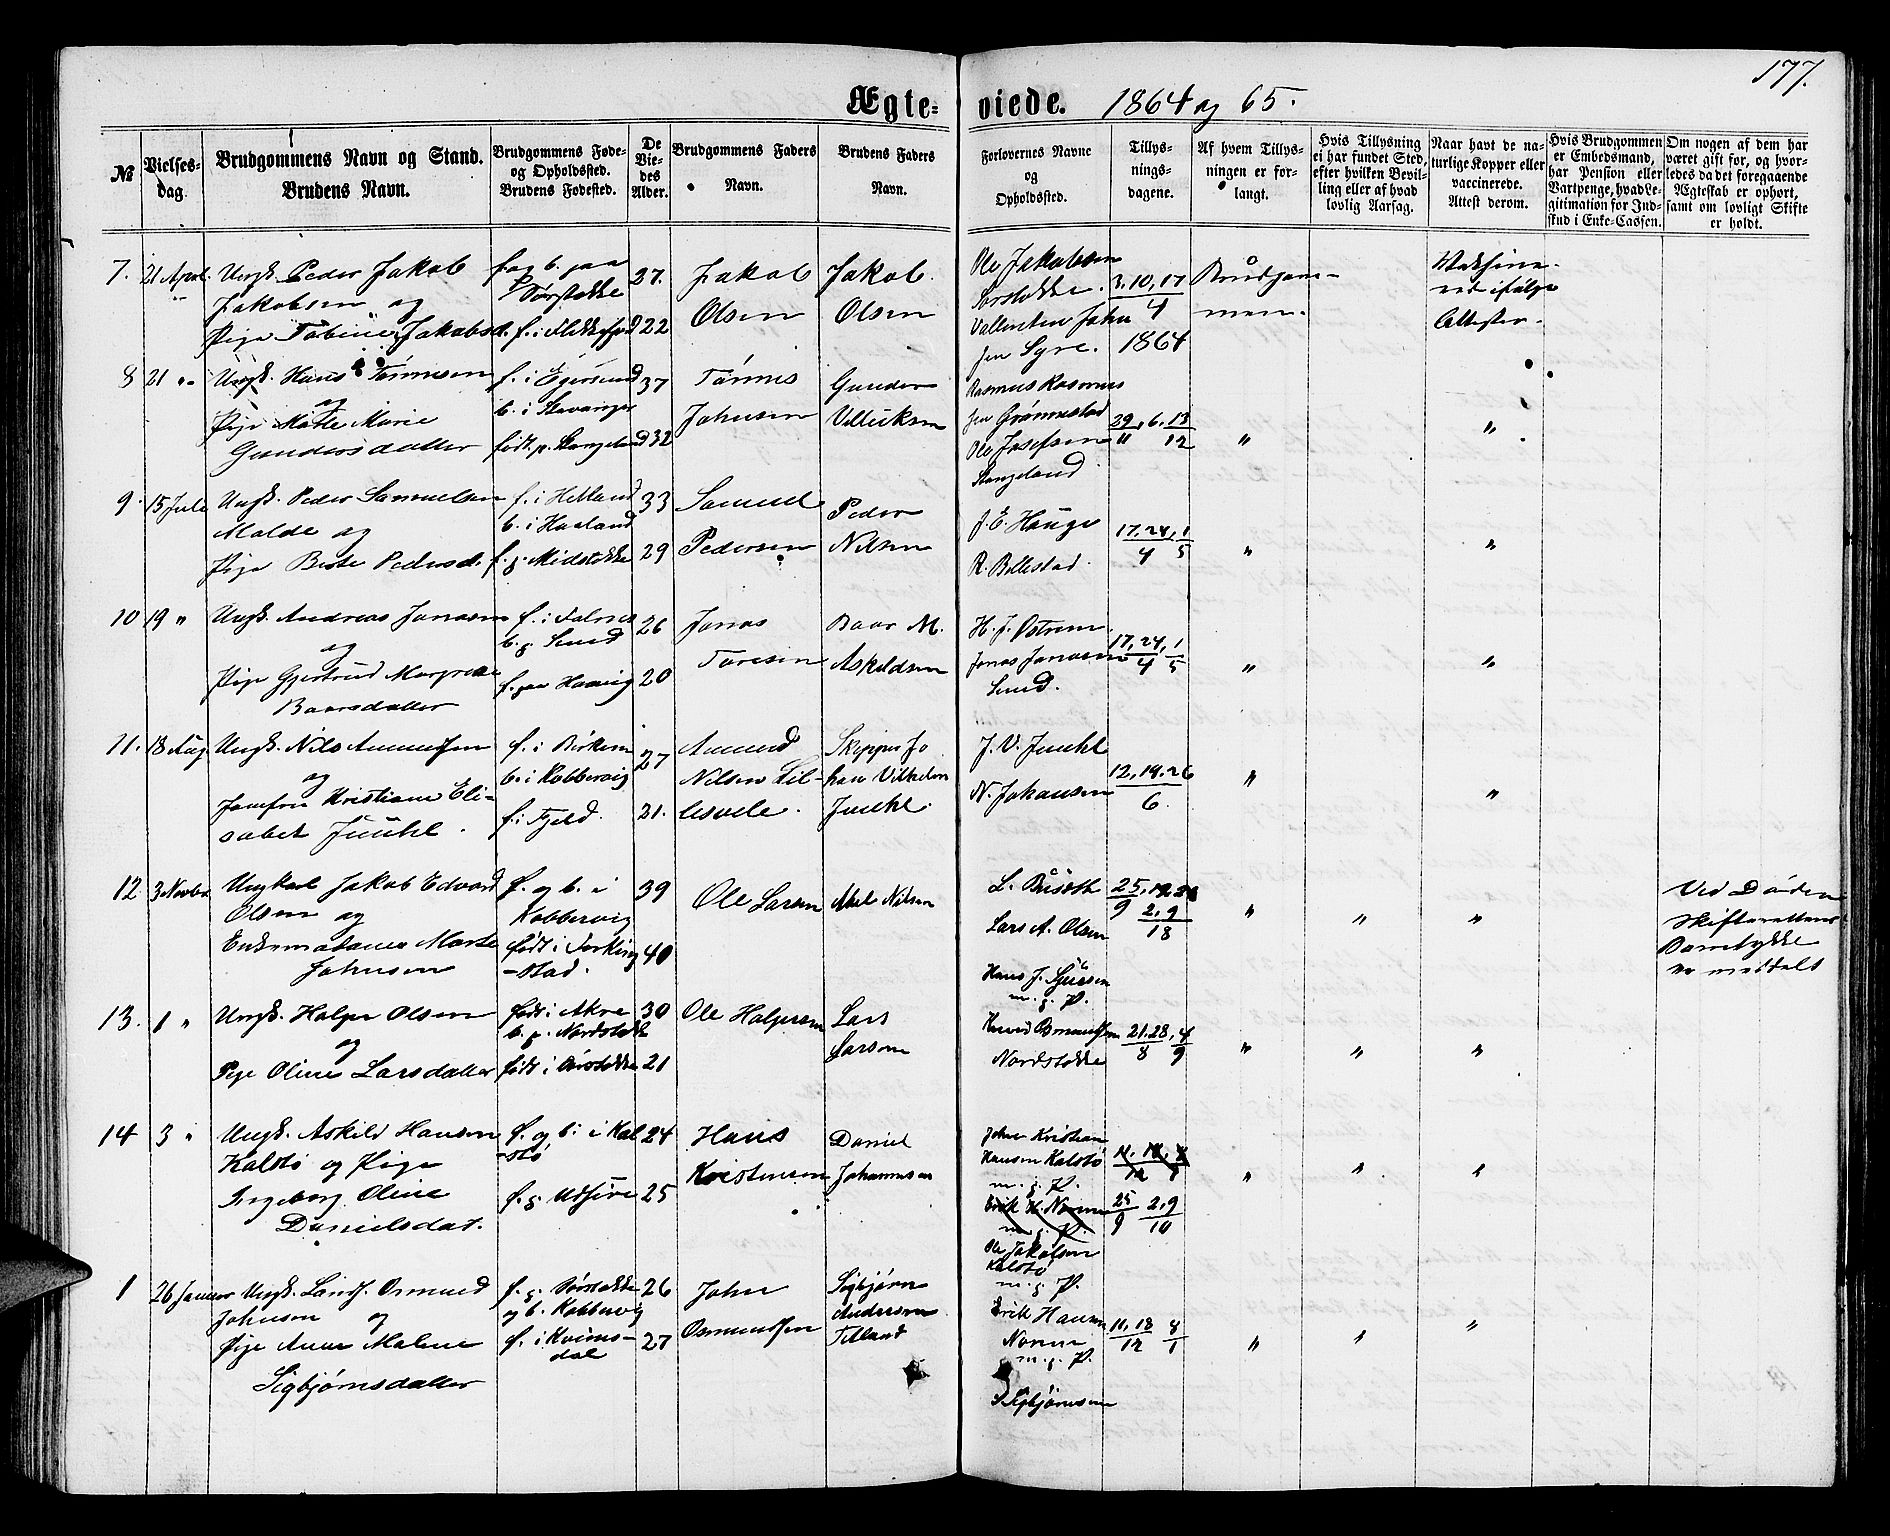 177.
Ægte-viede. 1864 og 65.
№
Vielses-dag.
Brudgommens Navn og Stand.
Brudens Navn.
Brudgommens Føde- og Opholdssted.
Brudens Fødested.
De Viedes Alder.
Brudgommens Faders Navn.
Brudens Faders Navn.
Forlovernes Navne og Opholdssted.
Tillysningsdagene.
Af hvem Tillysningen er forlangt.
Hvis Tillysning ei har fundet Sted, efter hvilken Bevilling eller af hvad lovlig Aarsag.
Naar havt de naturlige Kopper eller vaccinerede. Attest derom.
Hvis Brudgommen er Embedsmand, har Pension eller Vartpenge, hvad Legitimation for Indskud i Enke-Cassen.
Om nogen af dem har været gift før, og hvorledes da det foregaaende Ægteskab er ophørt, samt om lovligt Skifte er holdt.
7. 21 April. Ungk. Peder Jakob
Jakobsen og
Pige Tobine Jakobsd.
f. og b. paa
Sørstokke
f. i Flekkefjord
27.
22
Jakob
Olsen
Jakob
Olsen
Ole Jakobsen
Sørstokke.
Vallentin John
sen Syre.
3, 10, 17
4
1864
Brudgom-
men.
Vaksine-
red ifølge
Attester.
8 21 " Ungk. Hans Tønnesen
og
Pige Malle Marie
Gundersdatter
f. i Egersund
b. i Stavanger
født p. Stangeland
37
32
Tønnes
Johnsen
Gunder
Villiksen
Rasmus Rasmus
sen Grønnestad
Ole Josefsen
Stangeland
29, 6, 13
11 12
"
"
9. 15 Jule Ungk. Peder Samuelsen
Malde og
Pige Berte Pedersd.
f. i Hetland
b. i Haaland
f. p. Midstokke
33
29
Samuel
Pedersen
Peder
Nilsen
J. E. Hauge
R. Bellestad.
17, 24, 1
4 5
"
"
10 19 " Ungk. Andreas Jonasen
og
Pige Gjertrud Margrete
Baarsdatter
f. i Falnes
b. p. Sund
f. paa Haavig
26
20
Jonas
Toresen
Baar M.
Askildsen
H. J. Østrem.
Jonas Jonasen
Sund.
17, 24, 1
4 5
"
"
11. 18 Aug. Ungk. Nils Amundsen
og
Jomfru Kristiane Eli-
sabet Juuhl.
f. i Birkem
b. i Kobbervig
f. i Fjeld.
27
21.
Amund
Nilsen Lil-
lesvele.
Skipper Jo
han Vilhelm
Juuhl.
J. V. Juuhl
N. Johansen
12, 19, 26
6.
"
"
12. 3 Novbr. Ungkarl Jakob Edvard
Olsen og
Enkemadame Marte
Johnsen
f. og b. i
Kobbervig
født i Ferking
-stad.
39
40
Ole Larsen
Abel Nilsen
L. Bussth
Lars A. Olsen
25
9
2, 9
"
"
"
Ved Døden
Skifterettens
Samtykke
er meddelt
13. 1 " Ungk. Holger Olsen
og
Pige Oline Larsdatter
født i Akre
b. p. Nordstokke
født i Sørstokke
30
21
Ole Holgersen
Lars
Larsen
Hans J. Sjursen
m. p. P.
Knud Osmundsen
Nordstokke
21, 28, 4
8 9
"
"
"
14 3 " Ungk. Askild Hansen
Kalstø og Pige
Ingeborg Oline
Danielsdat.
f. og b. i Kal
-stø
f. p. Utsire
24
25
Hans
Kristensen
Daniel
Johannesen
John Kristian
Hansen Kalstø
m. p. P.
Erik H. Nornes
m. p. P.
Ole Jakobsen
Kalstø
m. p. P.
25 2, 9
9 10
"
"
"
1 26 Januar Ungk. Landh. Osmund
Johnsen og
Pige Anne Malene
Sigbjørnsdatter
f. p. Sørstokke
og b. Kobbervig
f. i Kvims-
dal
26
27
John
Osmundsen
Sigbjørn
Andersen
Tilland
Erik Hansen
Nornes
m. p. P.
Sigbjørnsen
11, 18 8
12 1
"
"
"